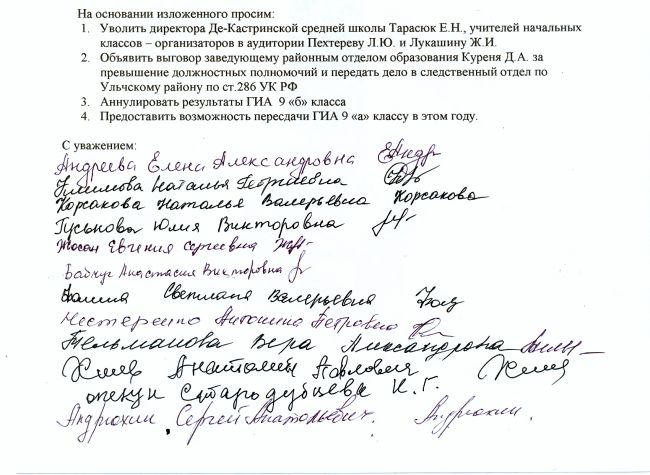 На основании изложенного просим:
1. Уволить директора Де-Кастринской средней школы Тарасюк Е.Н., учителей начальных
классов – организаторов в аудитории Пехтереву Л.Ю. и Лукашину Ж.И.
2. Объявить выговор заведующему районным отделом образования Куреня Д.А. за
превышение должностных полномочий и передать дело в следственный отдел по
Ульчскому району по ст.286 УК РФ
3. Аннулировать результаты ГИА 9 «б» класса
4. Предоставить возможность пересдачи ГИА 9 «а» классу в этом году.
С уважением:
Андреева Елена Александровна
Наталья Петровна
Корсакова Наталья Валерьевна Корсакова
Гуськова Юлия Викторовна
Евгения Сергеевна
Анастасия Викторовна
Светлана Валерьевна
Нестеренко Антонина Петровна
Тельманова Вера Александровна
Анатолий Павлович
опекун Стародубцева Н. Г.
Андрюхин Сергей Анатольевич. Андрюхин.